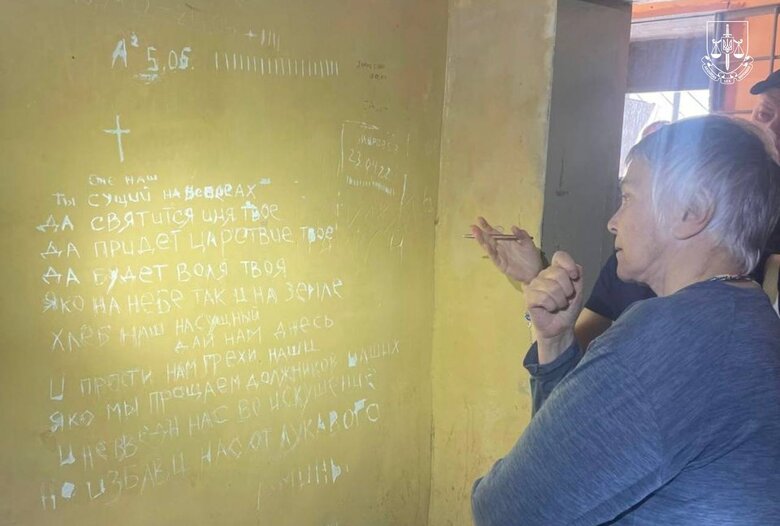 5.05.
23.04.22
ОЧЕ НАШ
ТЫ СУЩИЙ НА НЕБЕСАХ
ДА СВЯТИТСЯ ИМЯ ТВОЕ
ДА ПРИДЕТ ЦАРСТВИЕ ТВОЕ
ДА БУДЕТ ВОЛЯ ТВОЯ
ЯКО НА НЕБЕ ТАК И НА ЗЕМЛЕ
ХЛЕБ НАШ НАСУЩНЫЙ
ДАЙ НАМ ДНЕСЬ
И ПРОСТИ НАМ ГРЕХИ НАШИ
ЯКО МЫ ПРОЩАЕМ ДОЛЖНИКОВ НАШИХ
И НЕ ВВЕДИ НАС ВО ИСКУШЕНИЕ
НО ИЗБАВИ НАС ОТ ЛУКАВОГО
АМИНЬ